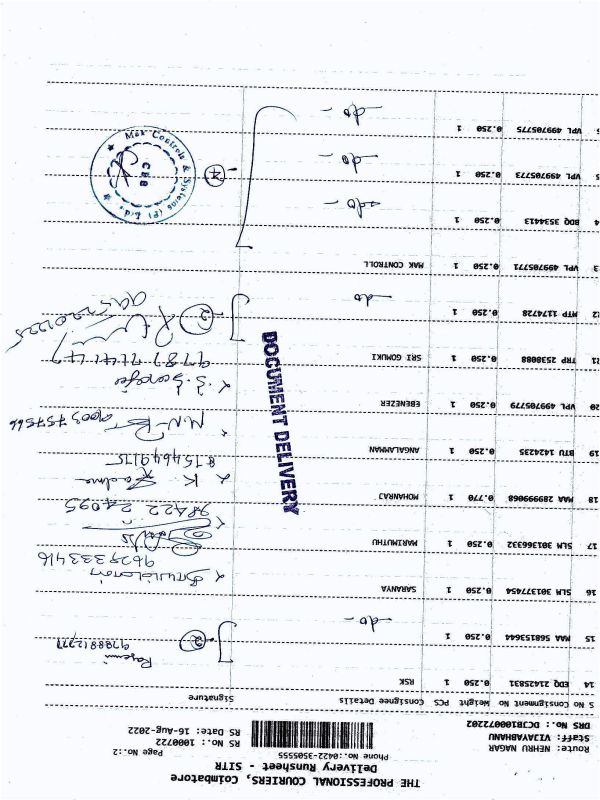 THE PROFESSIONAL COURIERS, Coimbatore
Delivery Runsheet - SITR
Phone No.:0422-3505555
Page No.:2
Route: NEHRU NAGAR
Staff: VIJAYABHANU
DRS No.: DCJB100072202
RS No.: 1000722
RS Date: 16-Aug-2022
S No Consignment No Weight PCS Consignee Details Signature
14 EDQ 21425831 0.250 1 RSK
Rajeni
9788812777
15 MAA 568153644 0.250 1 -do-
2
16 SLM 301377454 0.250 1 SARANYA
9629333416
17 SLM 301366332 0.250 1 MARIMUTHU
98422 24095
18 MAA 289999068 0.770 1 MOHANRAJ
K
8754649175
19 BTU 1424235 0.250 1 ANGALAMMAN
9003757566
20 VPL 499705779 0.250 1 EBENEZER
21 TRP 2538088 0.250 1 SRI GOMUKI
22 MTP 1174728 0.250 1 -do-
2
3 VPL 499705771 0.250 1 MAK CONTROLL
4 BDQ 3534413 0.250 1 -do-
5 VPL 499705773 0.250 1 -do-
VPL 499705775 0.250 1 -do-
Mak Controls & Systems (P) Ltd.
CBE
DOCUMENT DELIVERY